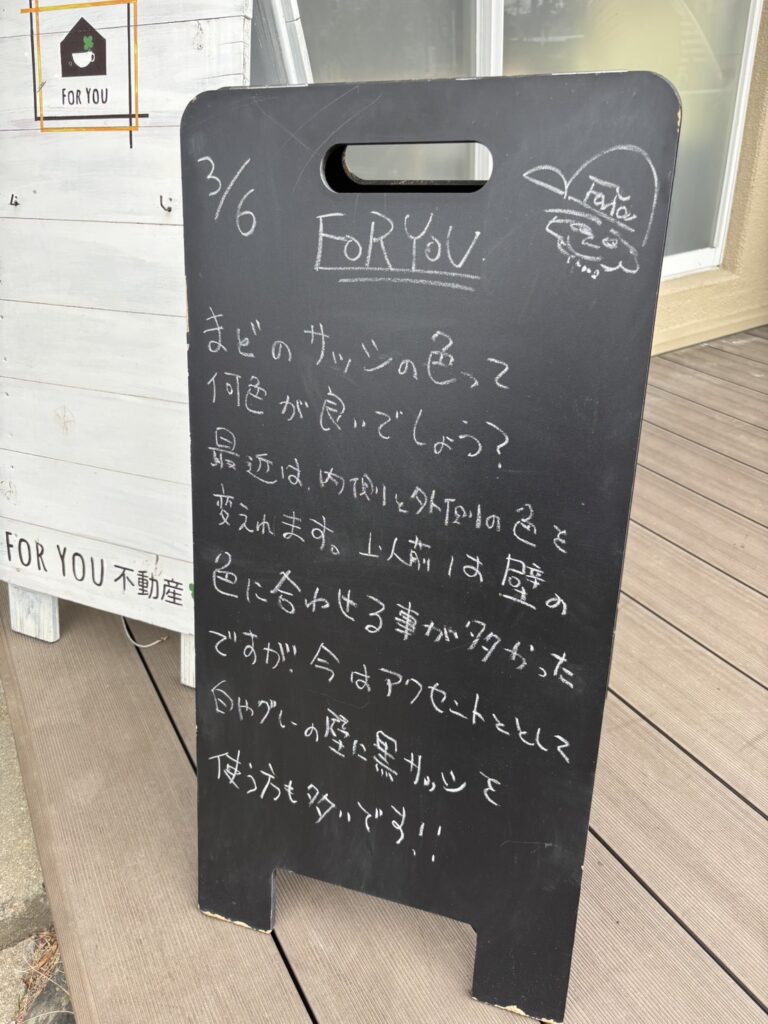 FOR YOU
FOR YOU 不動産
3/6
FOR YOU
まどのサッシの色って
何色が良いでしょう?
最近は、内側と外側の色を
変えれます。以前は壁の
色に合わせる事が多かった
ですが、今はアクセントととして
白やグレーの壁に黒サッシを
使う方も多いです!!